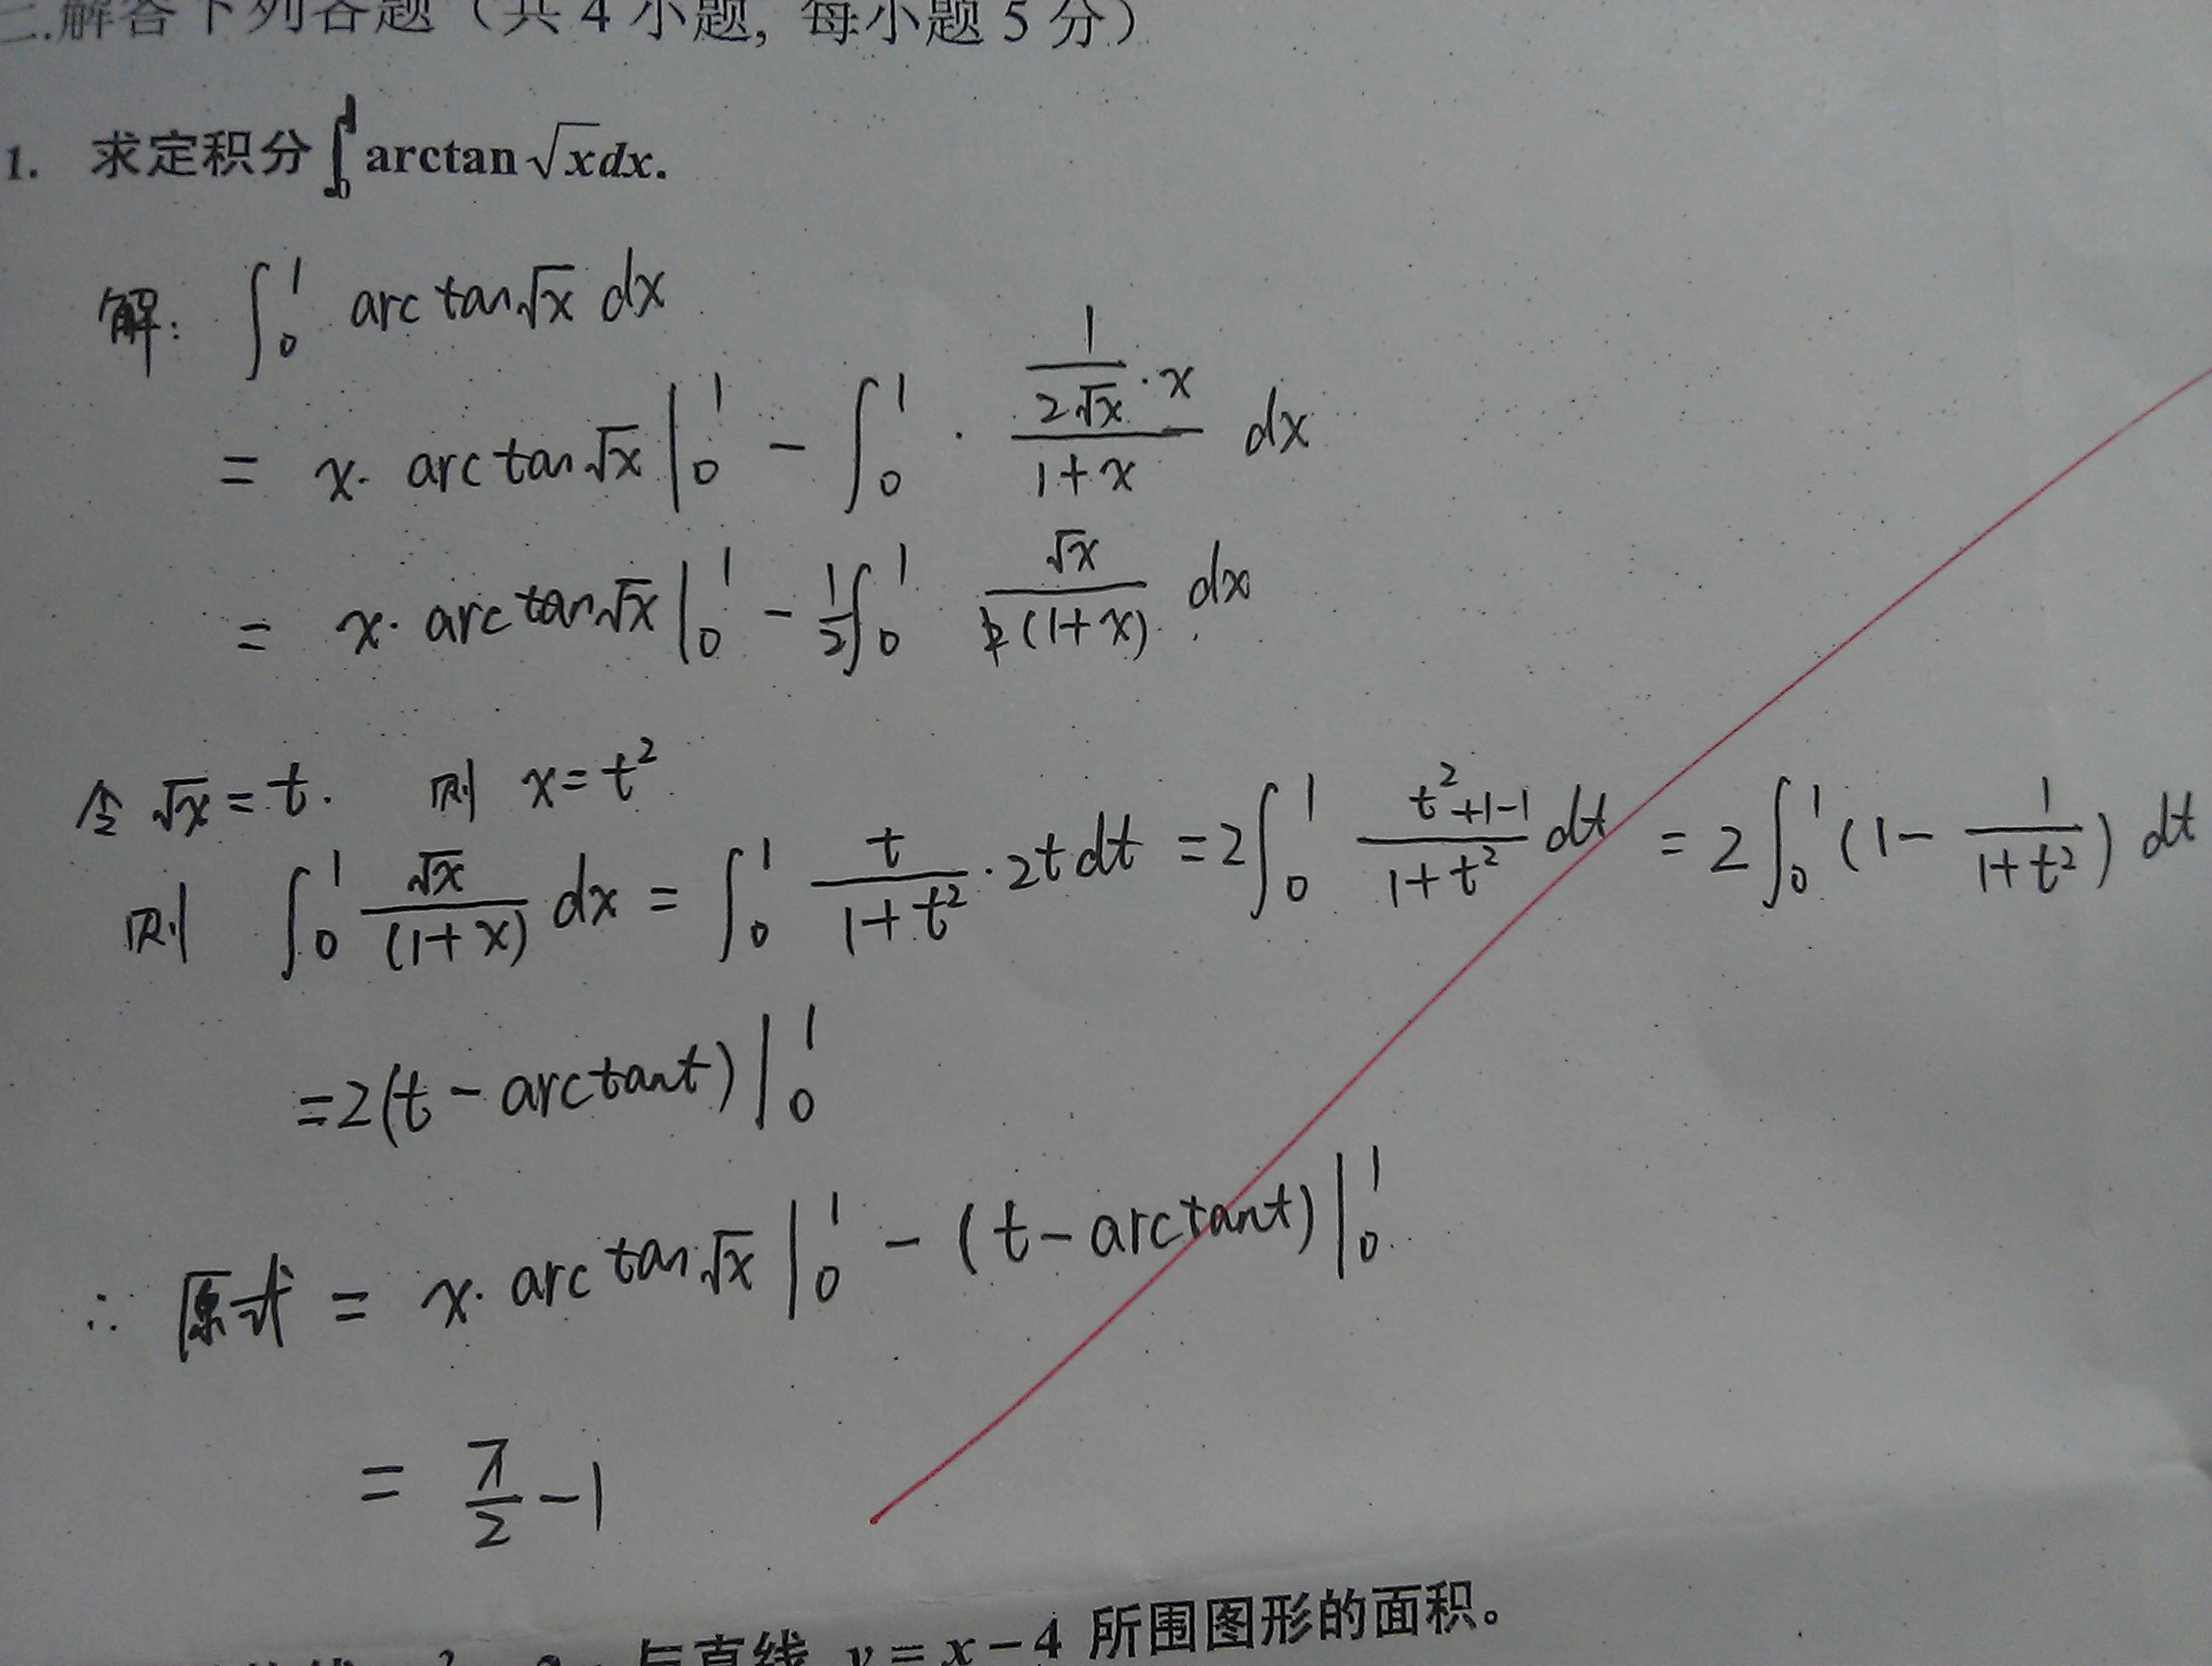 二.解答下列各题（共 4 小题, 每小题 5 分）
1. 求定积分 ∫₀¹ arctan √x dx.
解: ∫₀¹ arc tan√x dx
= x· arc tan√x |₀¹ - ∫₀¹ · (1/(2√x) · x)/(1+x) dx
= x· arc tan√x |₀¹ - 1/2 ∫₀¹ √x/(1+x) dx
令 √x = t. 则 x = t²
则 ∫₀¹ √x/(1+x) dx = ∫₀¹ t/(1+t²) · 2t dt = 2∫₀¹ (t²+1-1)/(1+t²) dt = 2∫₀¹ (1 - 1/(1+t²)) dt
= 2(t - arc tan t) |₀¹
∴ 原式 = x· arc tan√x |₀¹ - (t - arc tan t) |₀¹
= π/2 - 1
与直线 y = x - 4 所围图形的面积。